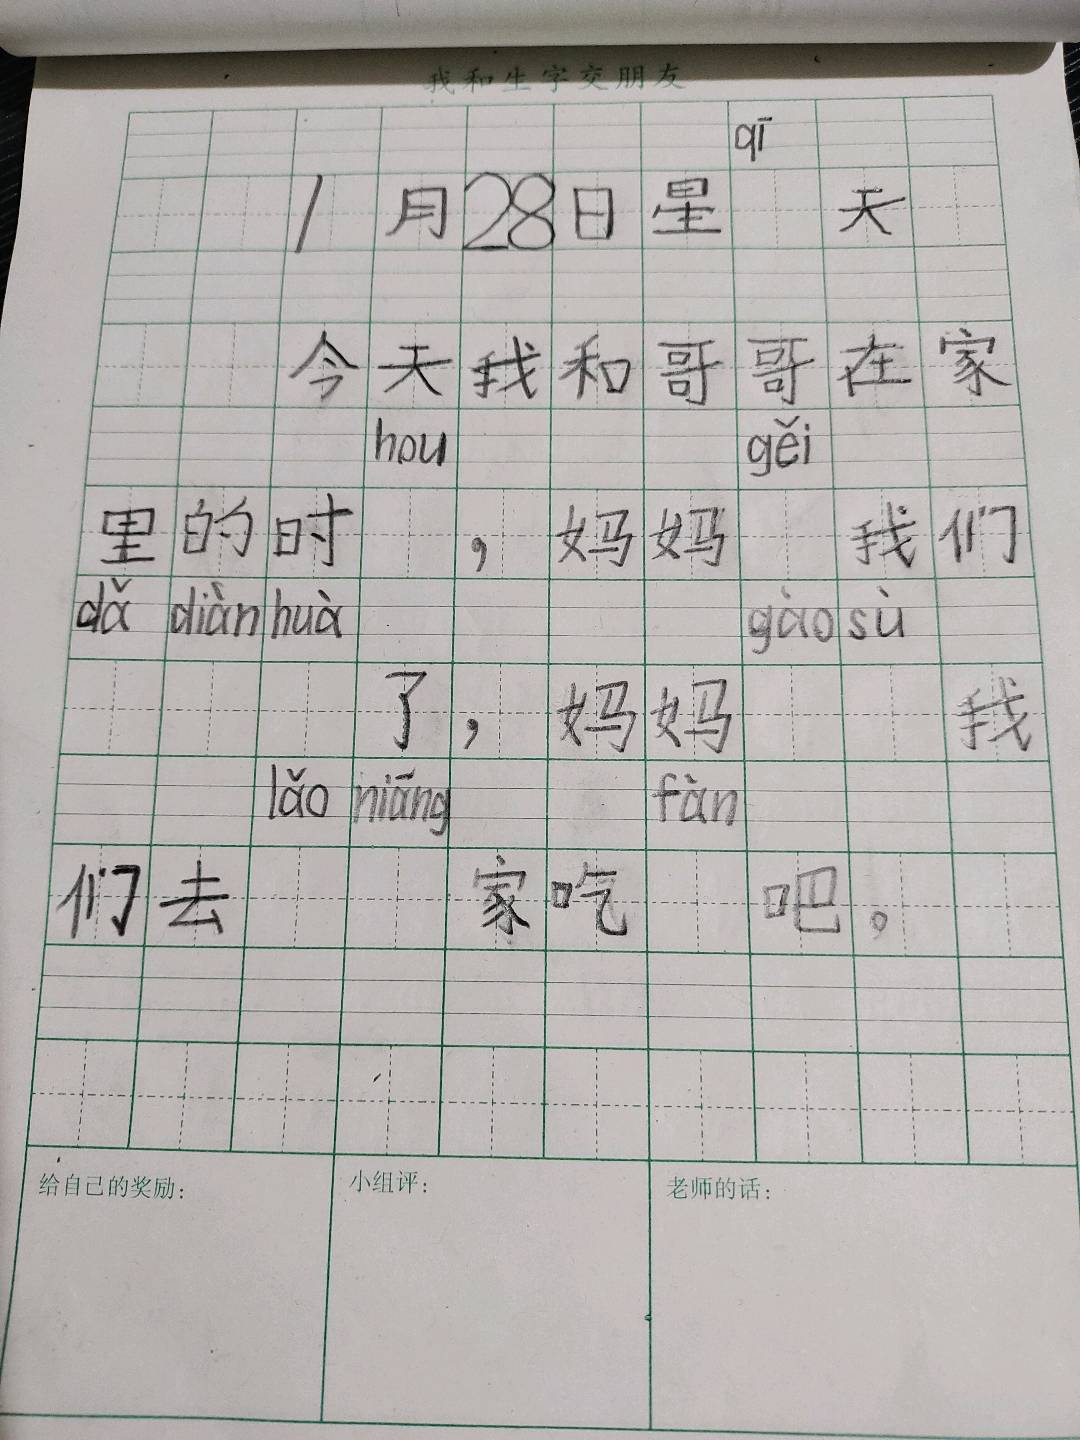 我和生字交朋友
qī
1月28日星 天
今天我和哥哥在家
hou gěi
里的时 ，妈妈 我们
dǎ diàn huà gào sù
了，妈妈 我
lǎo niāng fàn
们去 家吃 吧。
给自己的奖励： 小组评： 老师的话：